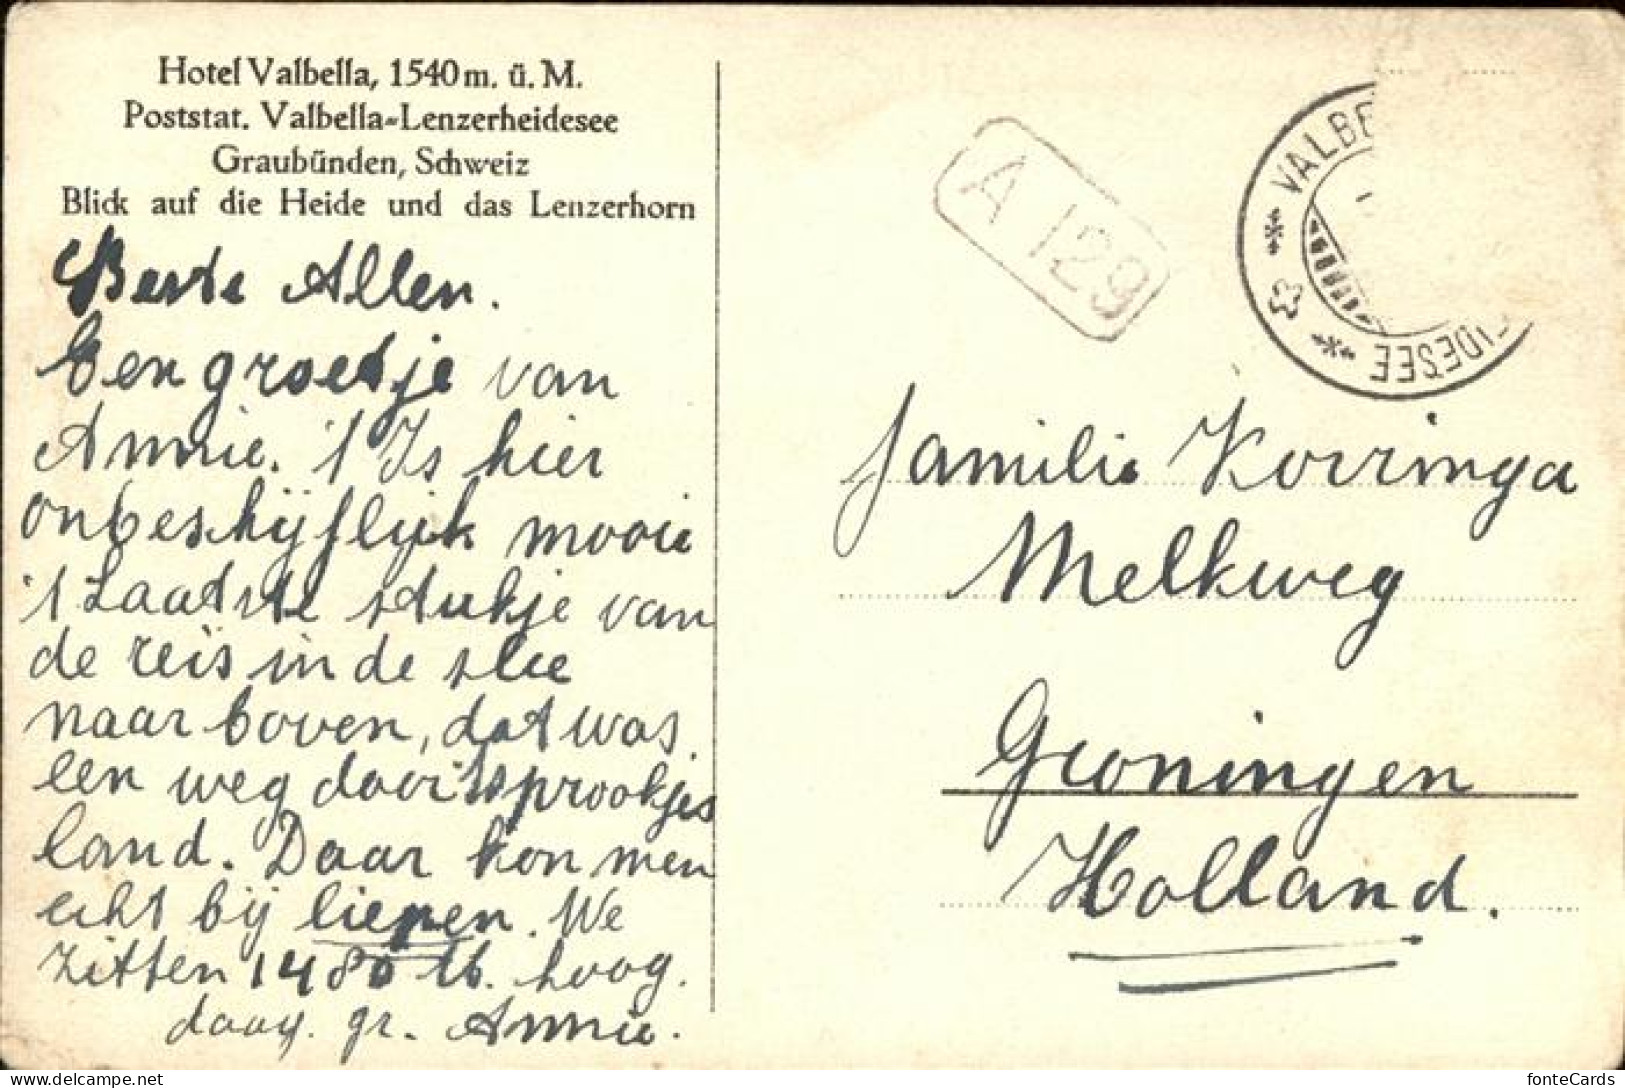 Hotel Valbella, 1540 m. ü. M.
Poststat. Valbella-Lenzerheidesee
Graubünden, Schweiz
Blick auf die Heide und das Lenzerhorn
Beste Allen.
Een groetje van
Annie. 't Is hier
onbeschijflijk mooie
't Laatste stukje van
de reis in de slee
naar boven, dat was
een weg door 'tsprookjes
land. Daar kon men
echt bij liepen. We
zitten 1480 M. hoog.
daag. gr. Annie.
A 129
VALBE
IDESEE
familie Korringa
Melkweg
Groningen
Holland.
fonteCards